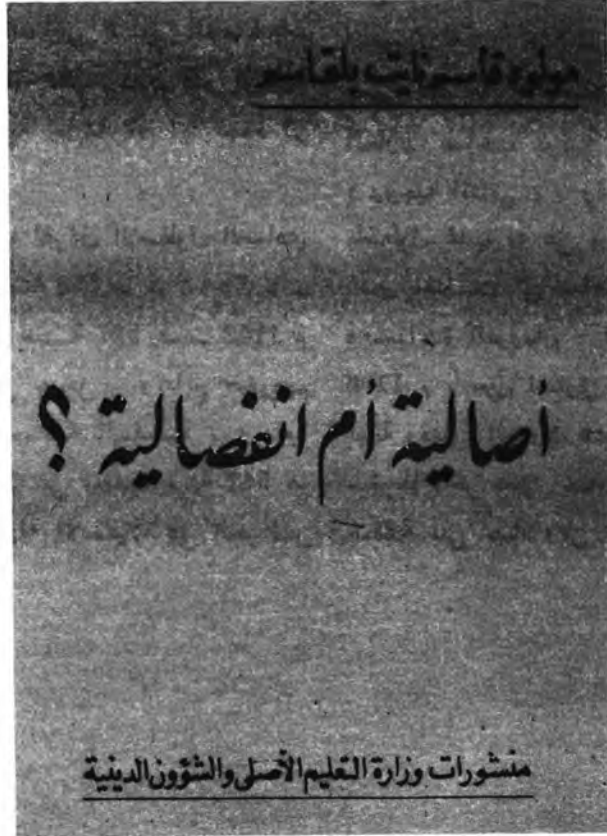 مولود قاسم نايت بلقاسم
أصالية أم انفصالية ؟
منشورات وزارة التعليم الأصلي والشؤون الدينية